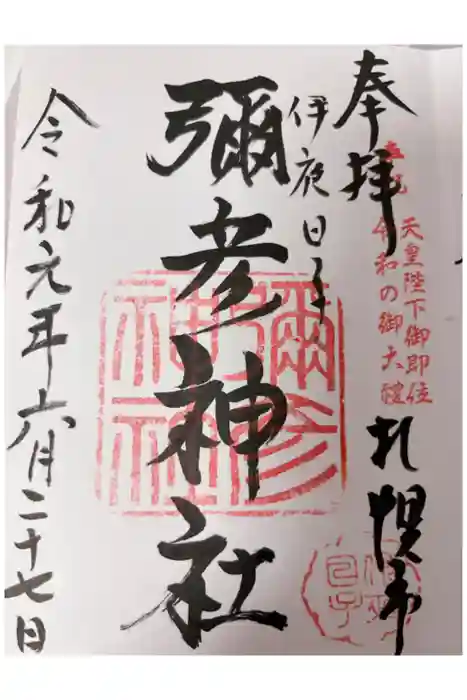 奉拝
天皇陛下御即位
奉祝 令和の御大禮
札幌市
伊夜日子
彌彦神社
彌彦神社
令和元年六月二十七日